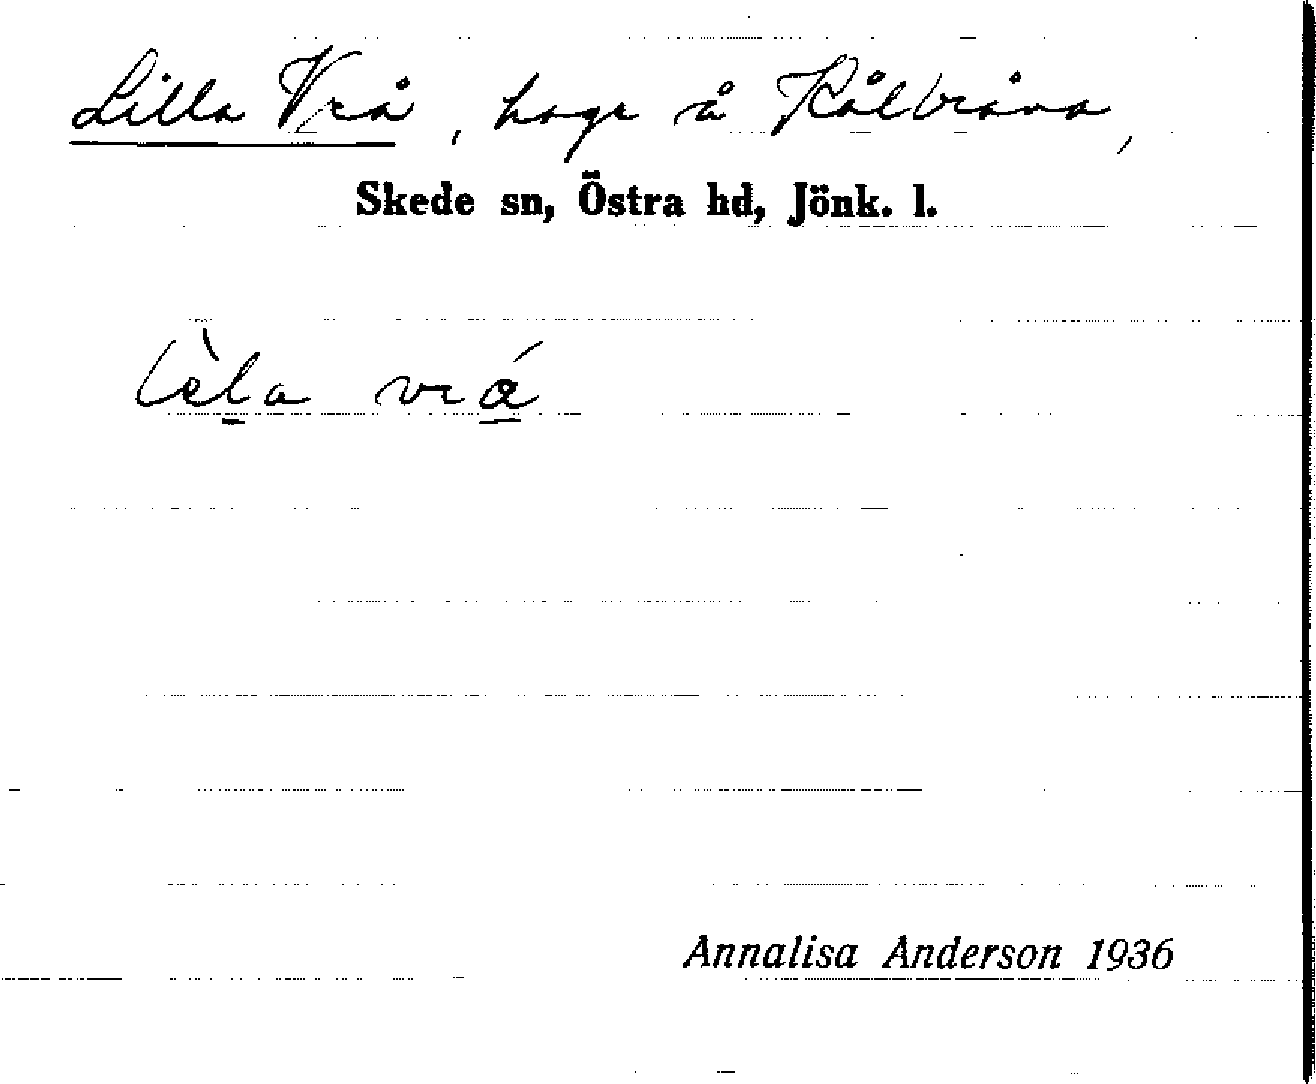 Lilla Vrå, hage å Kålvråna,
Skede sn, Östra hd, Jönk. l.
lèla vrá
Annalisa Anderson 1936